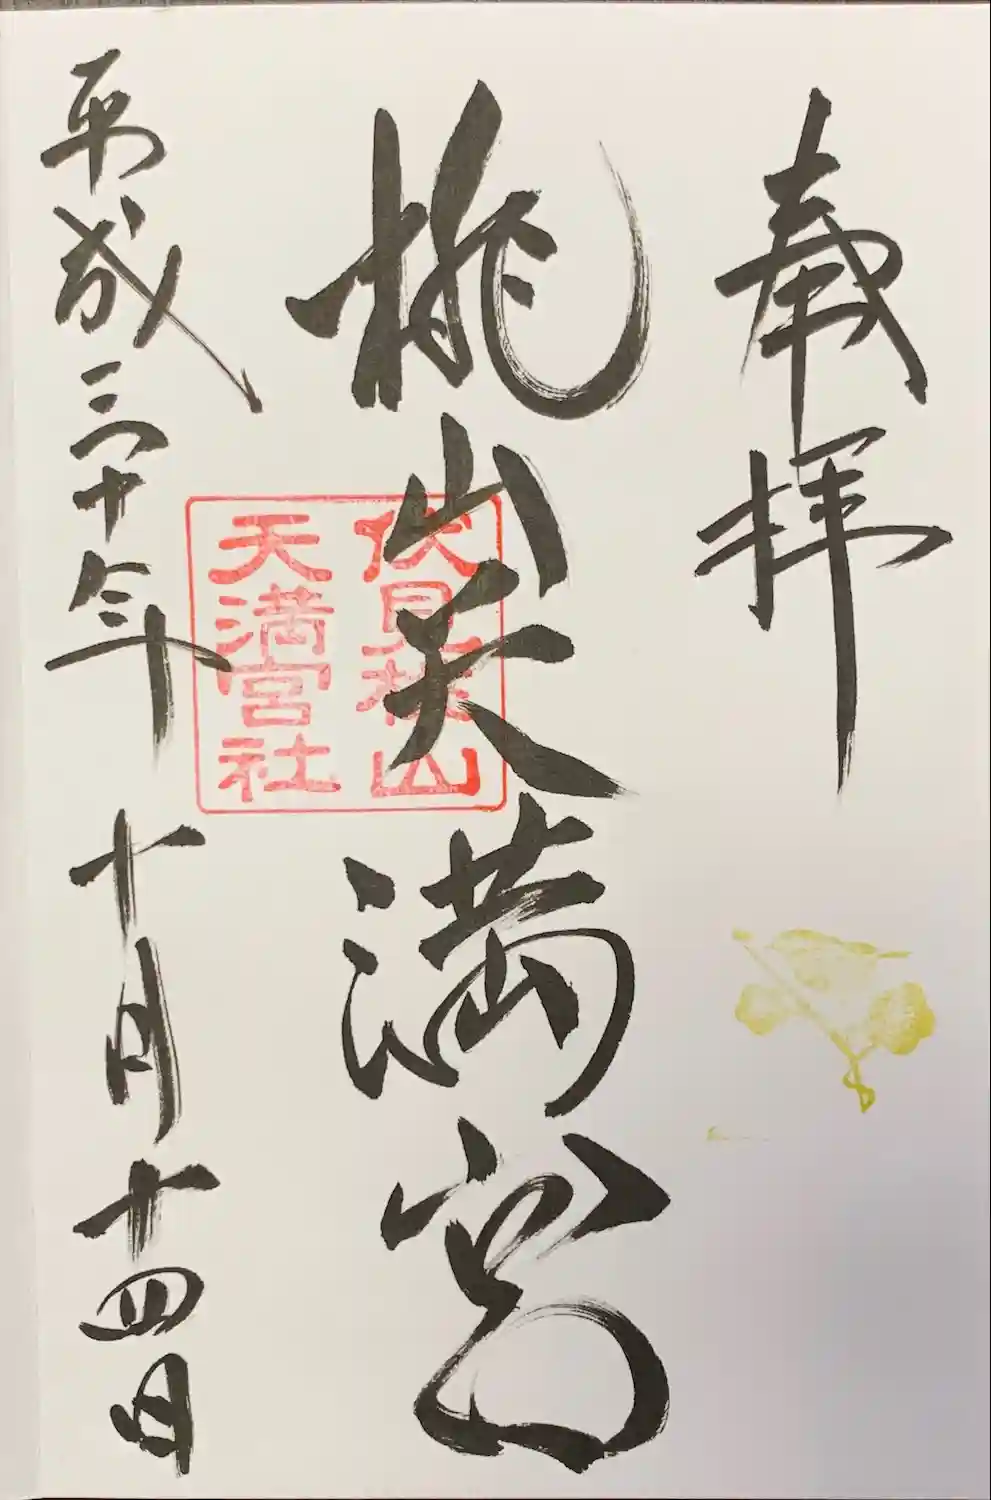 奉拝
桃山天満宮
伏見桃山
天満宮社
平成三十年 十月十四日